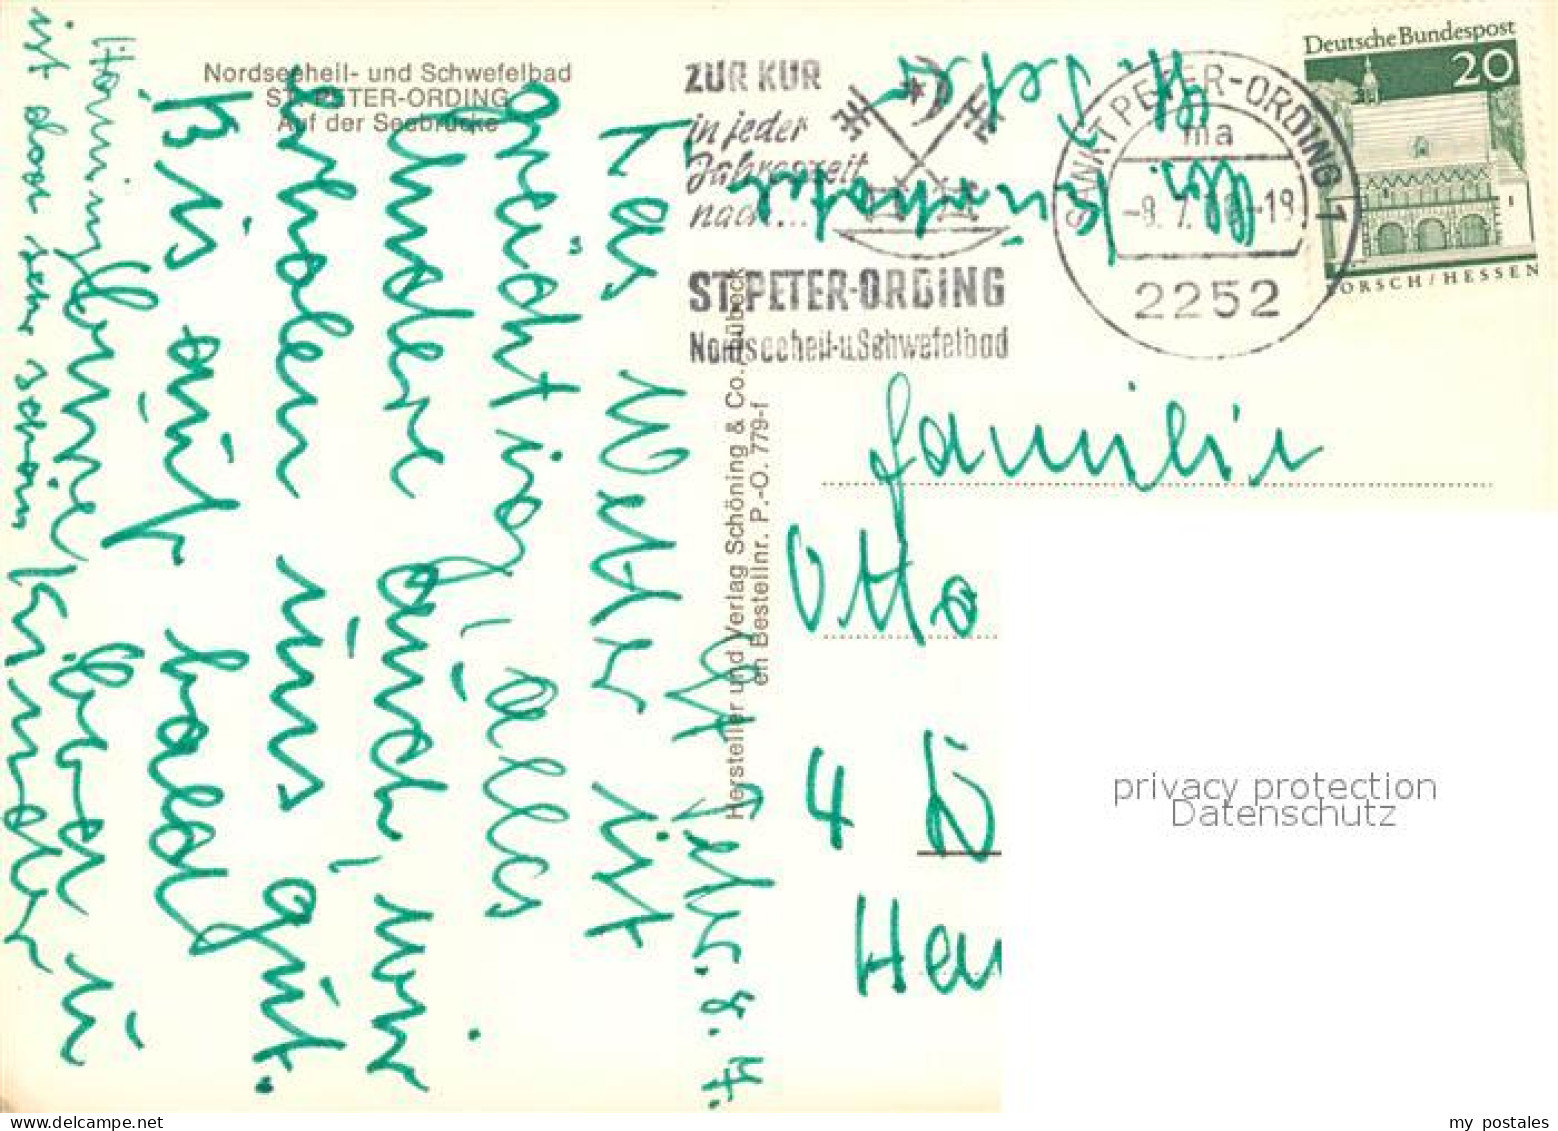 Nordseeheil- und Schwefelbad
ST. PETER-ORDING
Auf der Seebrücke
ZUR KUR
in jeder
Jahreszeit
nach...
ST. PETER-ORDING
Nordseeheil-u.Schwefelbad
SANKT PETER-ORDING 1
ma
2252
Deutsche Bundespost
20
LORSCH/HESSEN
Hersteller und Verlag Schöning & Co., Lübeck
Bestellnr. P.-O. 779-f
St. Peter. 8. 7.
Das Wetter ist
prächtig, alles
andere auch, wir
erholen uns gut.
Bis auf bald
Hanni,
ist doch sehr schön
Kinder
Familie
Otto
4 D
privacy protection
Datenschutz
my postales